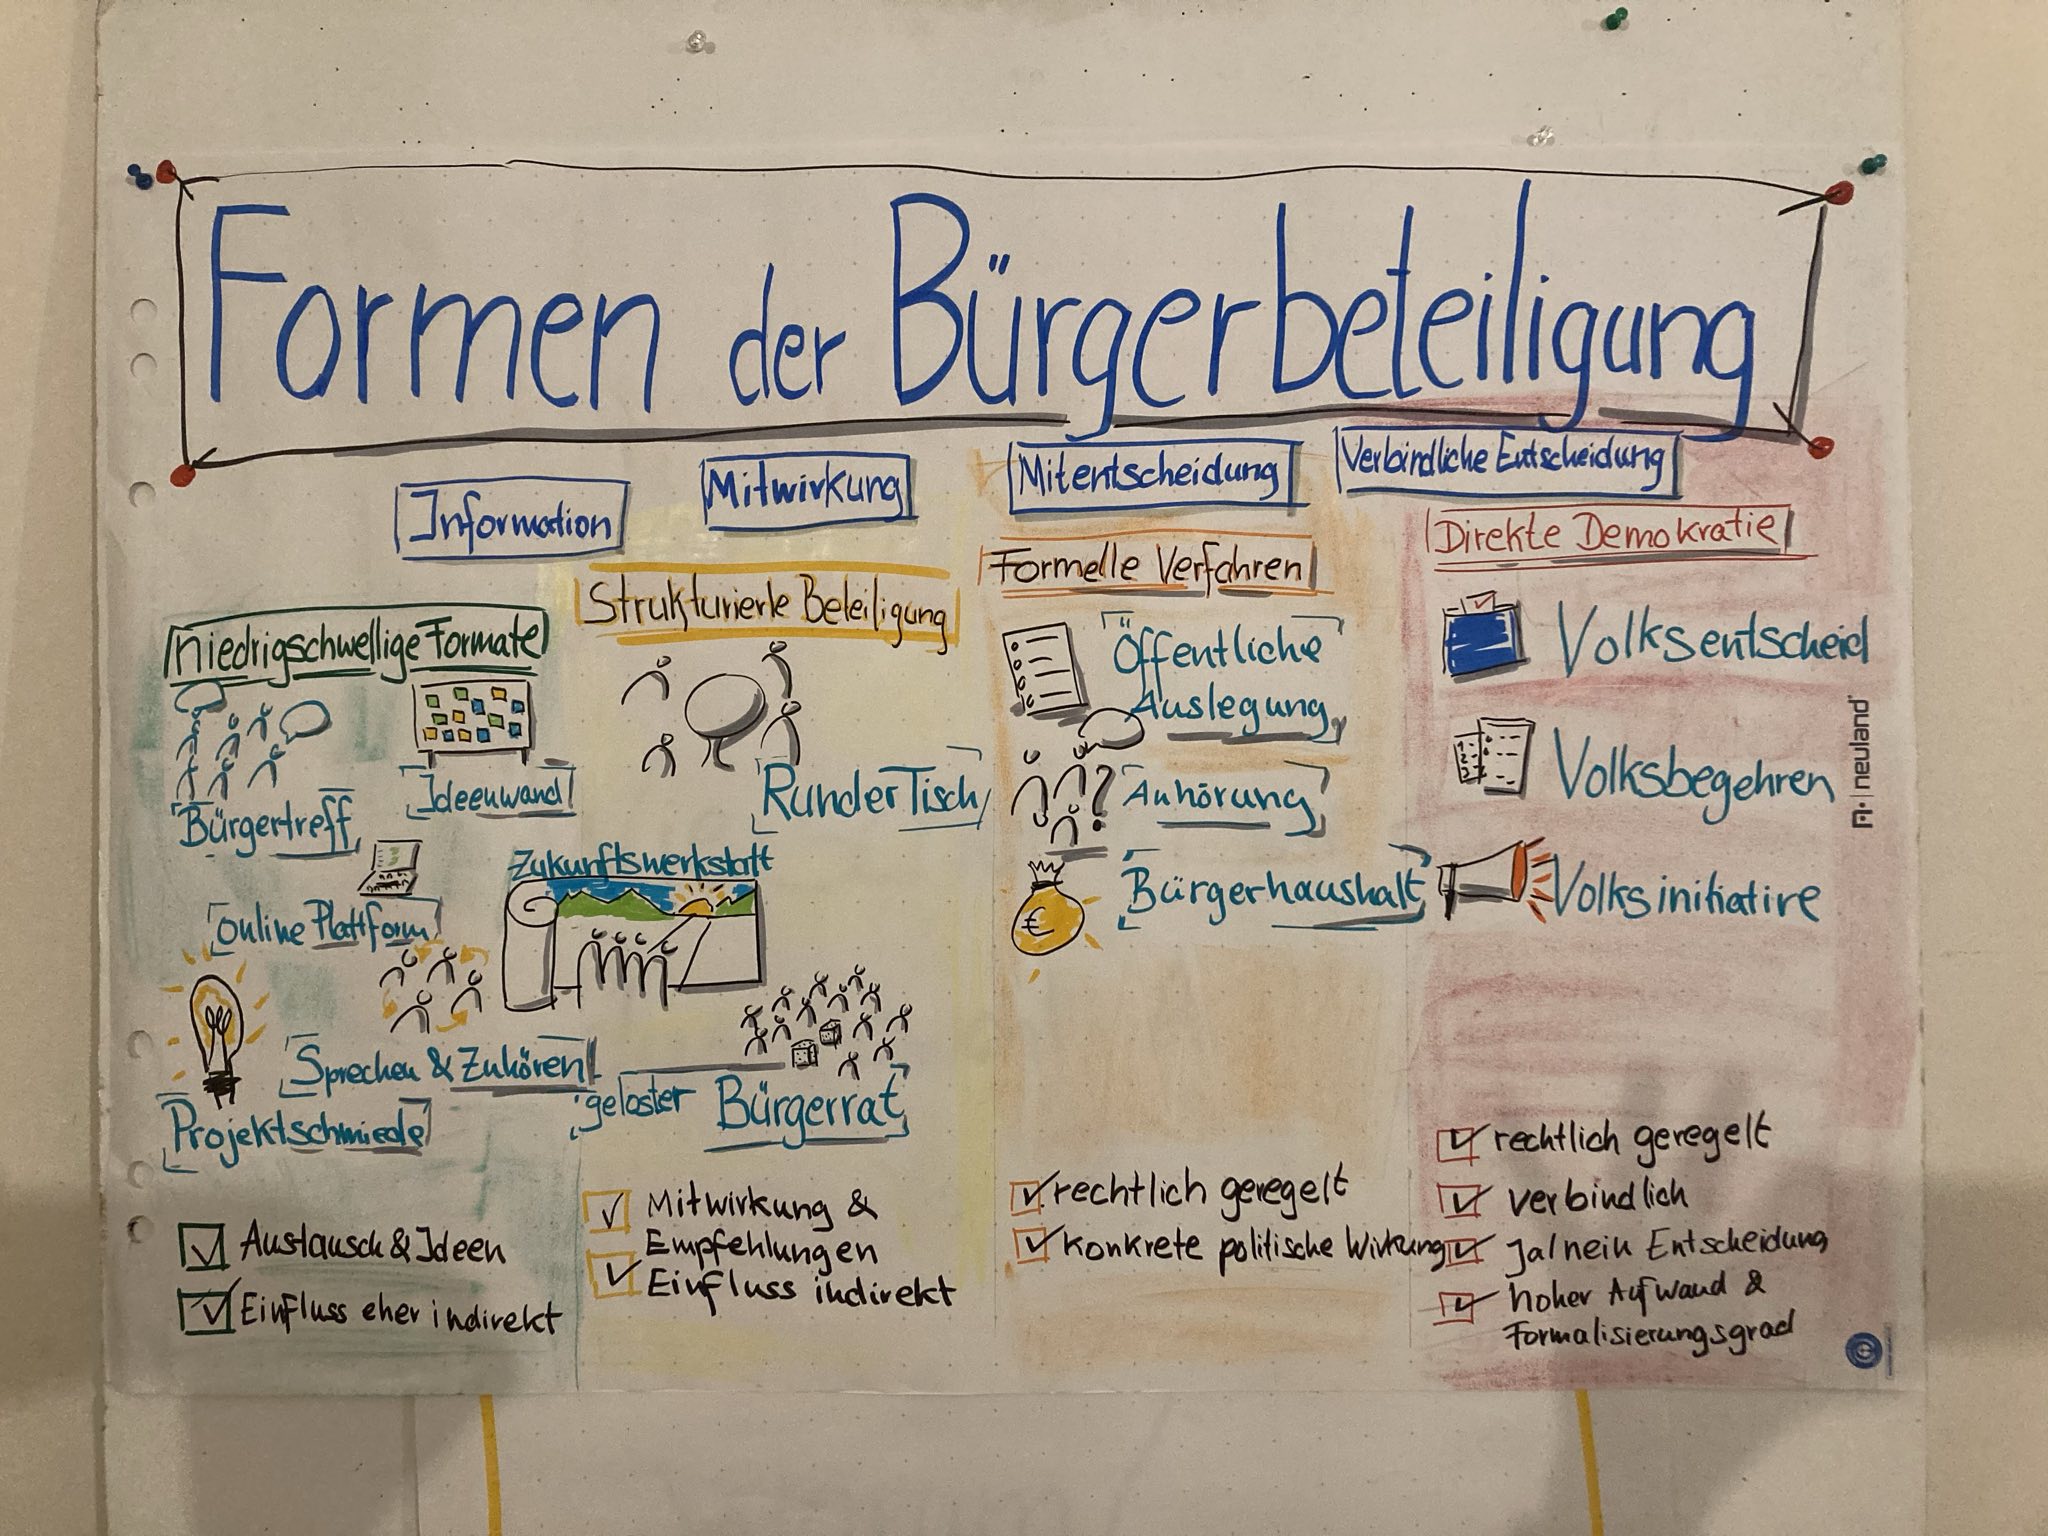 Formen der Bürgerbeteiligung
Information
Mitwirkung
Mitentscheidung
Verbindliche Entscheidung
niedrigschwellige Formate
Bürgertreff
Ideenwand
online Plattform
Sprechen & Zuhören
Projektschmiede
Austausch & Ideen
Einfluss eher indirekt
Strukturierte Beteiligung
Runder Tisch
Zukunftswerkstatt
geloster Bürgerrat
Mitwirkung &
Empfehlungen
Einfluss indirekt
Formelle Verfahren
Öffentliche
Auslegung
Anhörung
?
€
Bürgerhaushalt
rechtlich geregelt
konkrete politische Wirkung
Direkte Demokratie
Volksentscheid
Volksbegehren
Volksinitiative
rechtlich geregelt
verbindlich
Ja/nein Entscheidung
hoher Aufwand &
Formalisierungsgrad
neuland